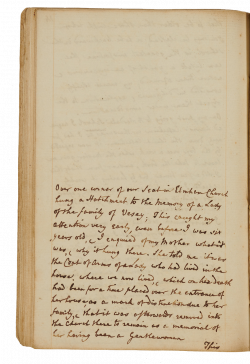 Over one corner of our Seat in Elmham Church
hung a Hatchment to the Memory of a Lady
of the family of Verag; This caught my
attention very early, even before I was six
years old, & I enquired of my Mother what it
was, & why it hung there. She told me it was
the Coat of Arms of a Lady who had lived in the
house, where we now lived, which on her Death
had been for a time placed over the entrance of
her house as a mark of distinction due to her
family, & that it was afterwards removed into
the Church there to remain as a memorial of
her having been a Gentlewoman.
This